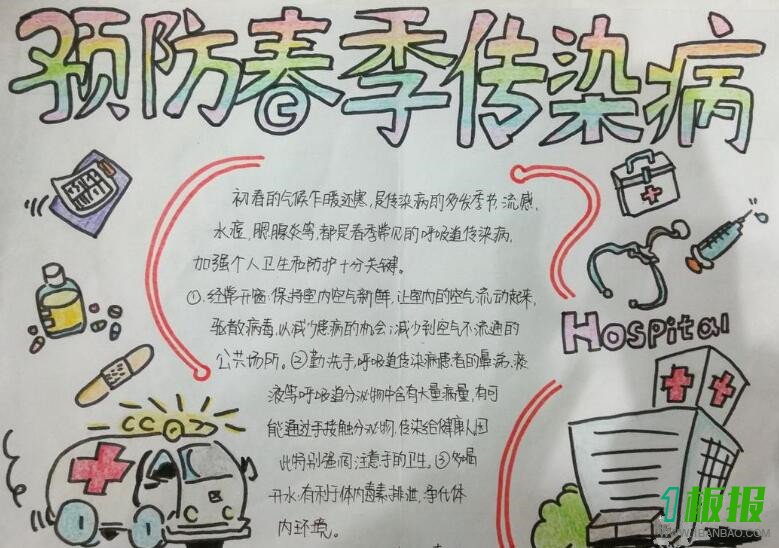 预防春季传染病
初春的气候乍暖还寒,是传染病的多发季节,流感,
水痘,腮腺炎等,都是春季常见的呼吸道传染病,
加强个人卫生和防护十分关键。
①.经常开窗:保持室内空气新鲜,让室内的空气流动起来,
驱散病毒,以减少患病的机会;减少到空气不流通的
公共场所。②勤洗手,呼吸道传染病患者的鼻涕,痰
液等呼吸道分泌物中含有大量病量,有可
能通过手接触分泌物,传染给健康人因
此特别强调注意手的卫生。③多喝
开水,有利于体内毒素排泄,净化体
内环境。
Hospital
1板报
WWW.1BANBAO.COM